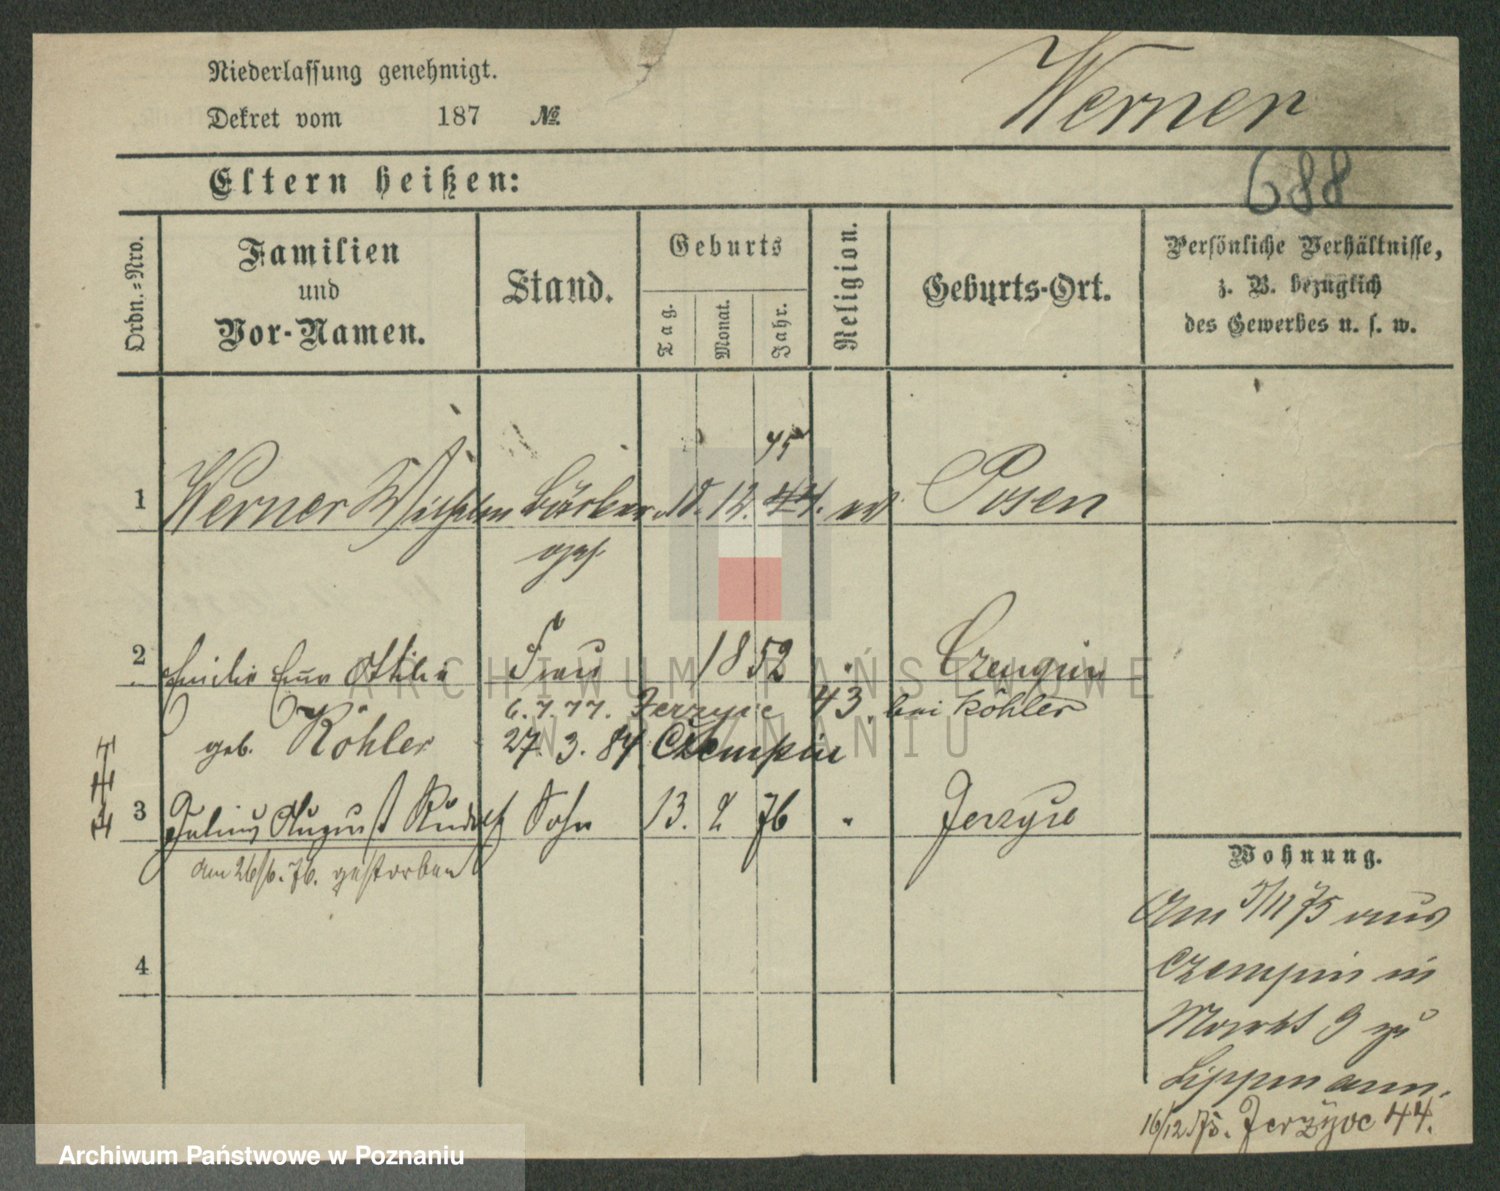 Niederlassung genehmigt.
Dekret vom 187 №.
Werner
688
Eltern heißen:
Ordn.=Nro.
Familien
und
Vor-Namen.
Stand.
Geburts
Tag.
Monat.
Jahr.
Religion.
Geburts-Ort.
Persönliche Verhältnisse,
z. B. bezüglich
des Gewerbes u. s. w.
75
1 Werner Wilhelm 18. 12. 44. ev Posen
2 Emilie Ottilie Frau 1852 " Czempin
6.7.77. Jerzyce 43. bei Köhler
geb. Köhler 27. 3. 84 Czempin
3 Julius August Rudolf Sohn 13. 2 76 " Jerzyce
am 26/6. 76. gestorben
4
Wohnung.
Am 5/11 75 aus
Czempin in
Markt 9 zu
Lippmann.
16/12 75. Jerzyce 44.
ARCHIWUM PAŃSTWOWE
W POZNANIU
Archiwum Państwowe w Poznaniu